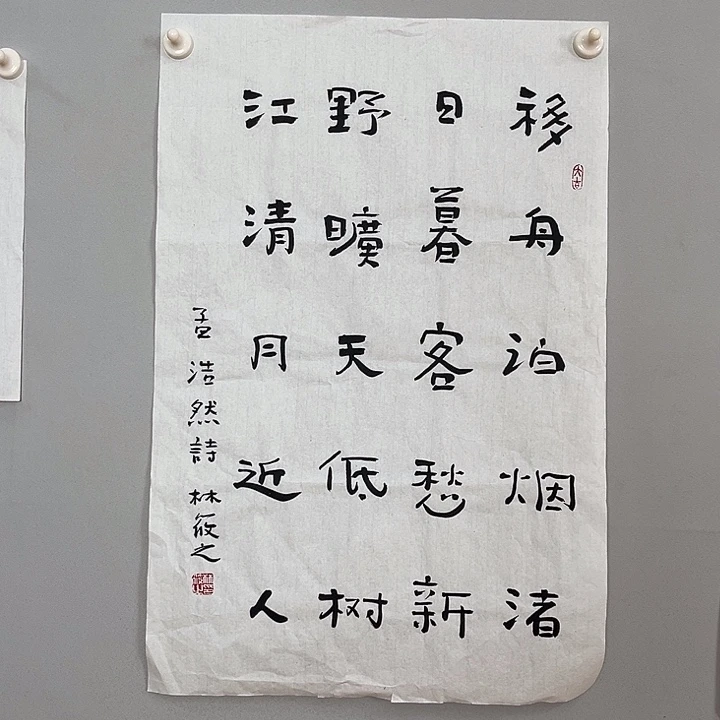 移舟泊烟渚
日暮客愁新
野曠天低树
江清月近人
孟浩然詩 林筱之
大吉